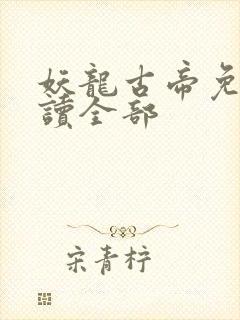 妖龍古帝免
讀全部
宋青柠